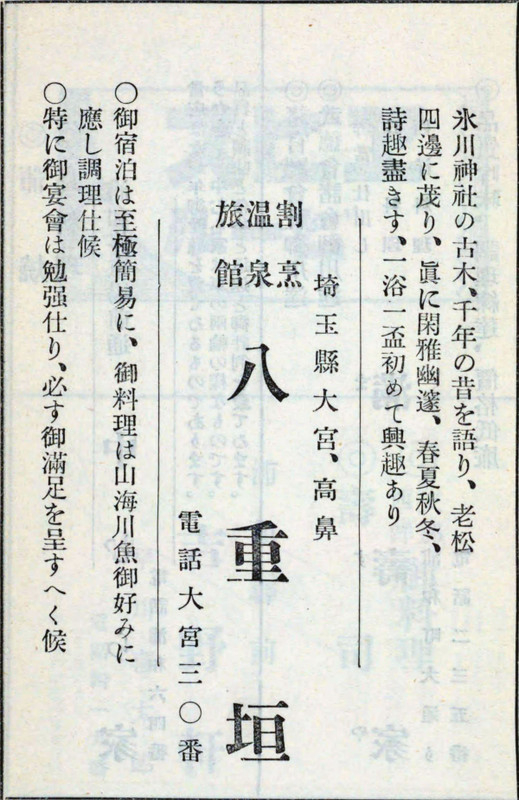 氷川神社の古木、千年の昔を語り、老松
四邊に茂り、眞に閑雅幽邃、春夏秋冬、
詩趣盡きす、一浴一盃初めて興趣あり
埼玉縣大宮、高鼻
割烹
温泉
旅館
八重垣
電話大宮三〇番
〇御宿泊は至極簡易に、御料理は山海川魚御好みに
應し調理仕候
〇特に御宴會は勉强仕り、必す御滿足を呈すへく候